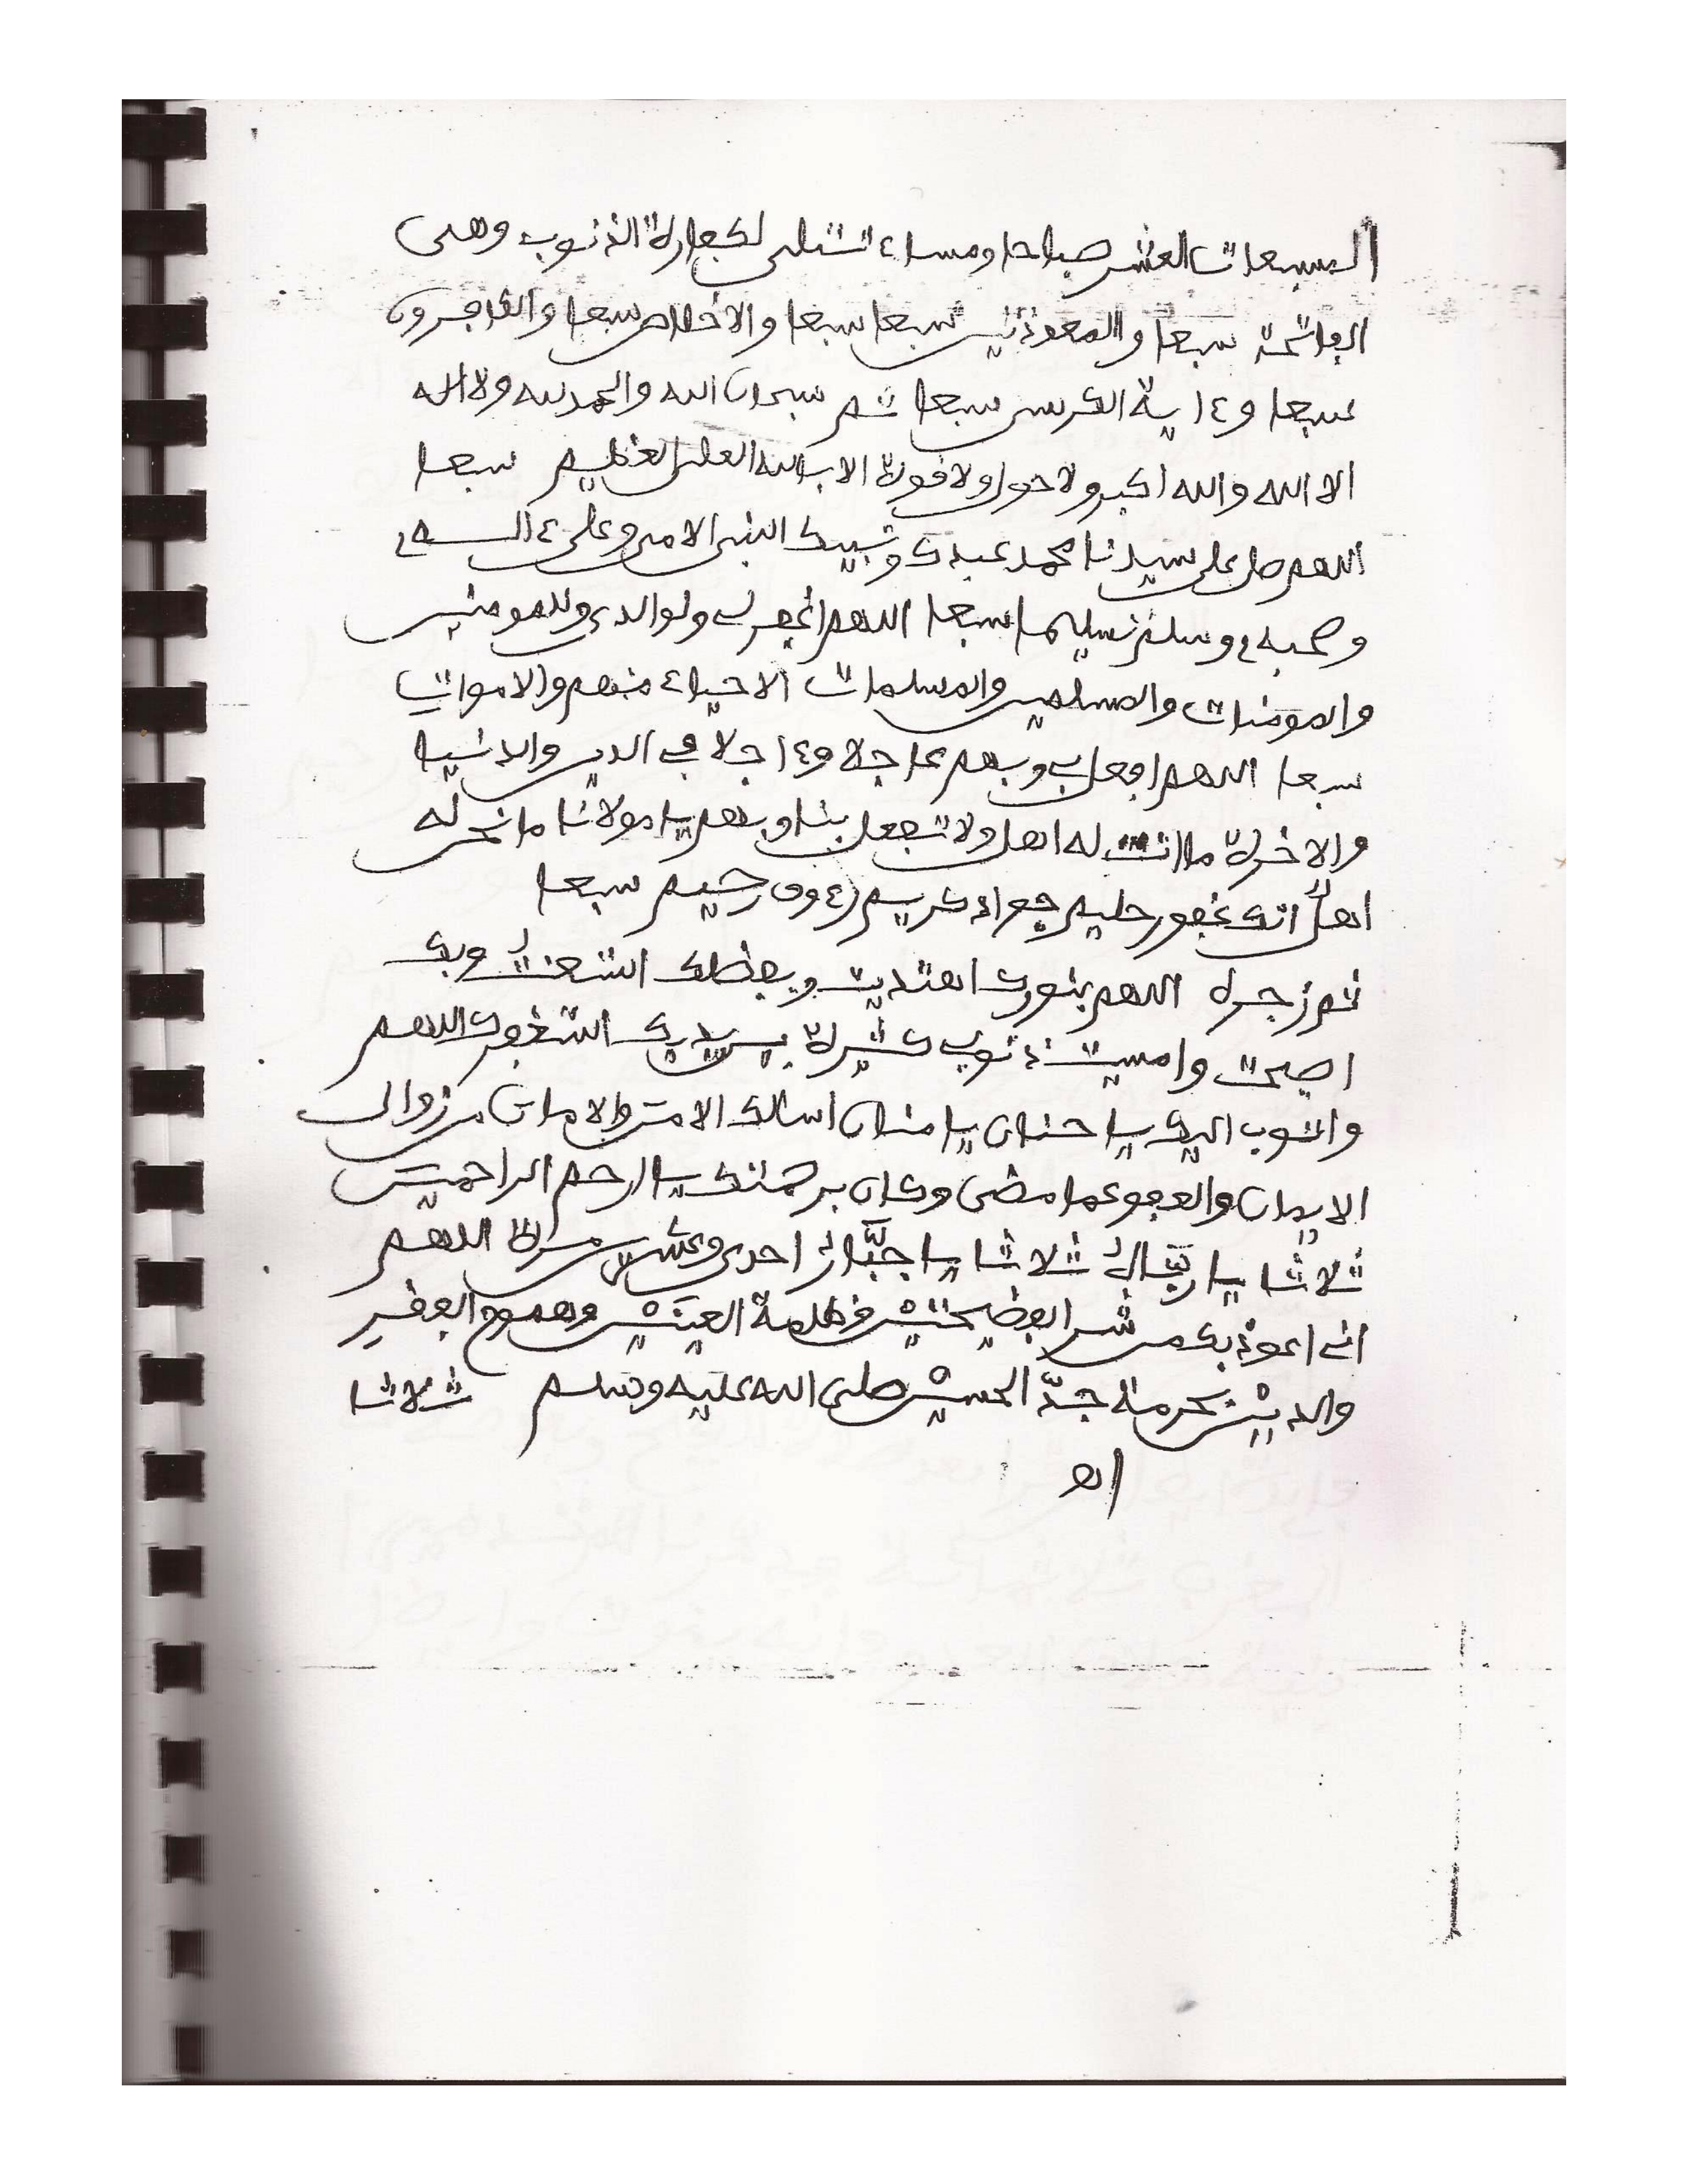 المسبعات العشر صباحا ومساء تتلى لكفارة الذنوب وهى
الفاتحة سبعا والمعوذتين سبعا سبعا والاخلاص سبعا والكافرون
سبعا وءاية الكرسى سبعا ثم سبحان الله والحمد لله ولا اله
الا الله والله اكبر ولا حول ولا قوة الا بالله العلى العظيم سبعا
اللهم صل على سيدنا محمد عبدك ونبيك النبى الامى وعلى ءاله
وصحبه وسلم تسليما سبعا اللهم اغفر لى ولوالدى وللمومنين
والمومنات والمسلمين والمسلمات الاحياء منهم والاموات
سبعا اللهم افعل بى وبهم عاجلا وءاجلا فى الدين والدنيا
والاخرة ما انت له اهل ولا تفعل بنا وبهم يا مولانا ما نحن له
اهل انك غفور حليم جواد كريم رءوف رحيم سبعا
ثم زجره اللهم بنورك اهتديت وبفضلك استغنيت وبك
اصبحت وامسيت ذنوبى كثيرة بين يديك استغفرك اللهم
واتوب اليك يا حنان يا منان اسالك الامن والامان من زوال
الايمان والعفو عما مضى وكان برحمتك يا ارحم الراحمين
ثلاثا يا ربّاه ثلاثا يا جبَّار احدى وعشرين مرة اللهم
انى اعوذ بك من شر الفضيحتين وظلمة العينين وهموم الفقر
والدين بحرمة جدّ الحسين صلى الله عليه وسلم ثلاثا
اهـ